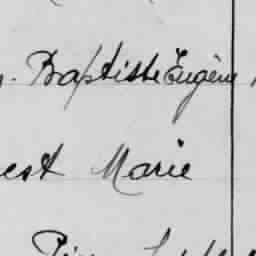 Baptiste Eugène
est Marie